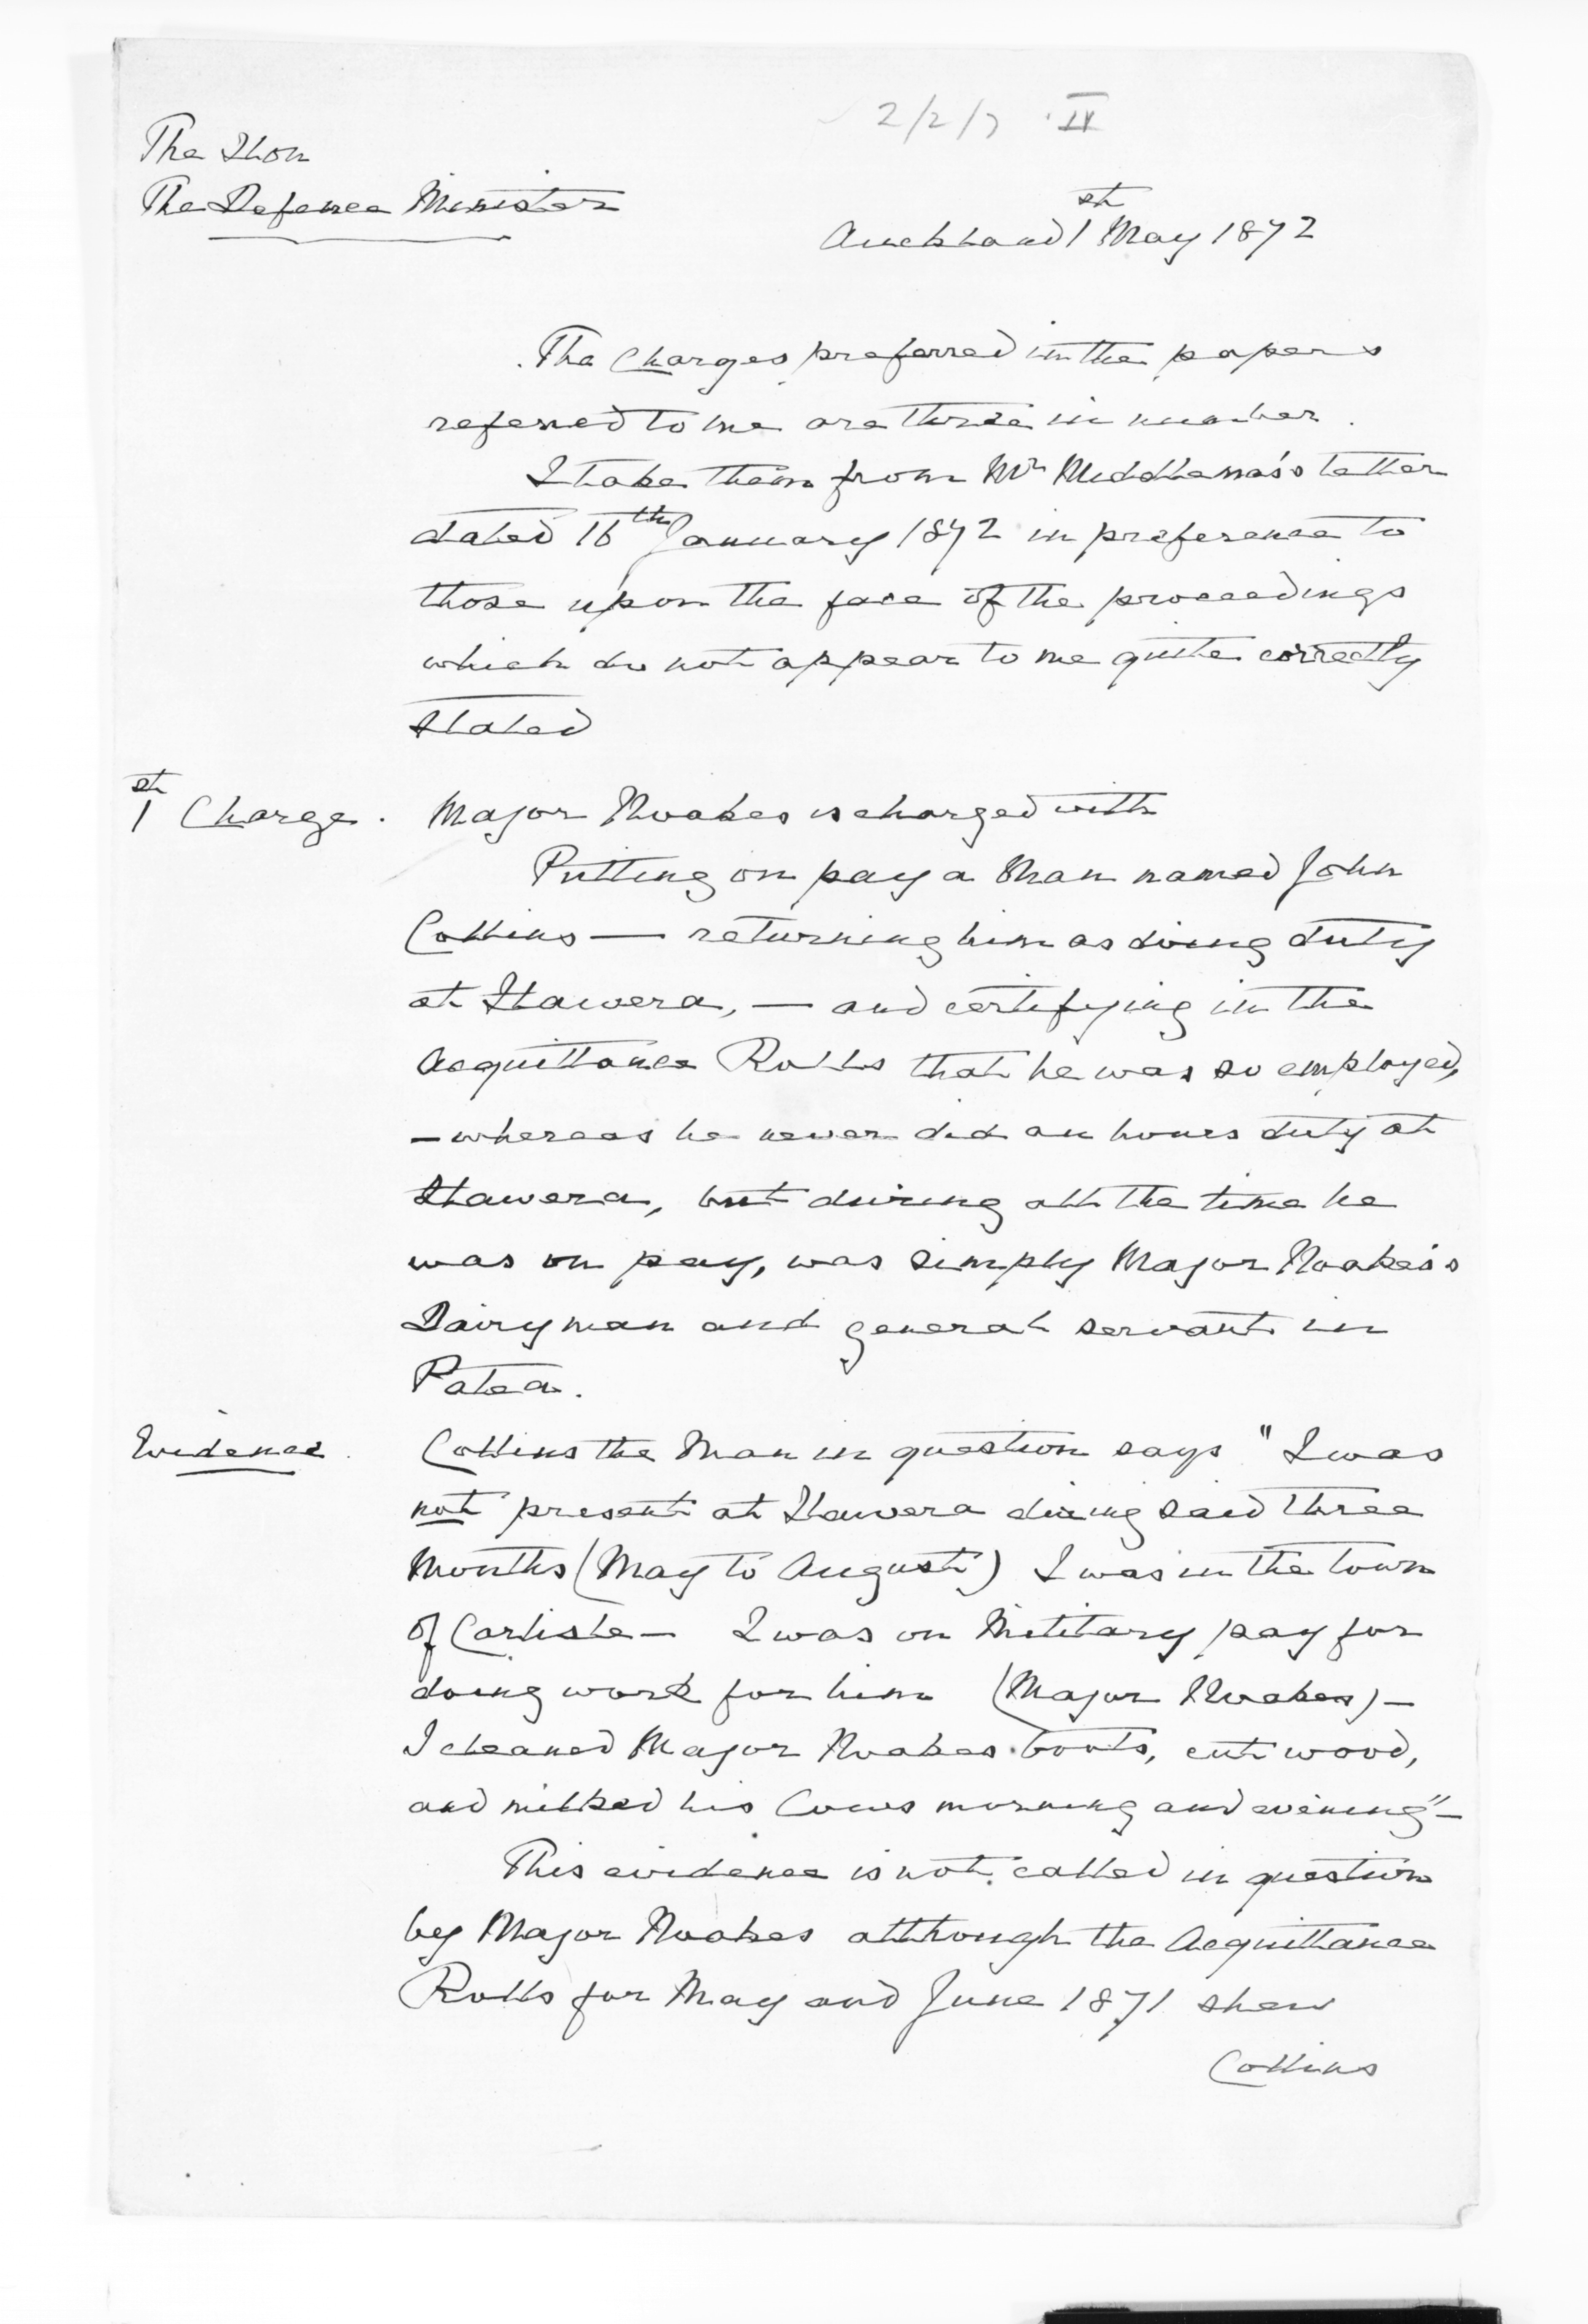 2/2/7 . IV
The Hon
The Defence Minister
Auckland 1st May 1872
The Charges preferred in the papers
referred to me are three in number.
I take them from Mr Middlemas's letter
dated 16th January 1872 in preference to
those upon the face of the proceedings
which do not appear to me quite correctly
stated
1st Charge. Major Noakes is charged with
Putting on pay a Man named John
Collins — returning him as doing duty
at Hawera, — and certifying in the
Acquittance Rolls that he was so employed,
— whereas he never did an hours duty at
Hawera, but during all the time he
was on pay, was simply Major Noakes's
Dairyman and general servant in
Patea.
Evidence. Collins the Man in question says "I was
not present at Hawera during said three
Months (May to August) I was in the town
of Carlisle — I was on Military pay for
doing work for him (Major Noakes) —
I cleaned Major Noakes boots, cut wood,
and milked his Cows morning and evening" —
This evidence is not called in question
by Major Noakes although the Acquittance
Rolls for May and June 1871 shew
Collins